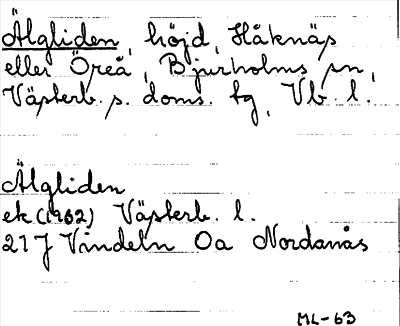 Älgliden, höjd, Håknäs
eller Öreå, Bjurholms sn,
Västerb. s. doms. tg, Vb. l.
Älgliden
ek (1962) Västerb. l.
21 J Vindeln 0a Nordanås
ML-63